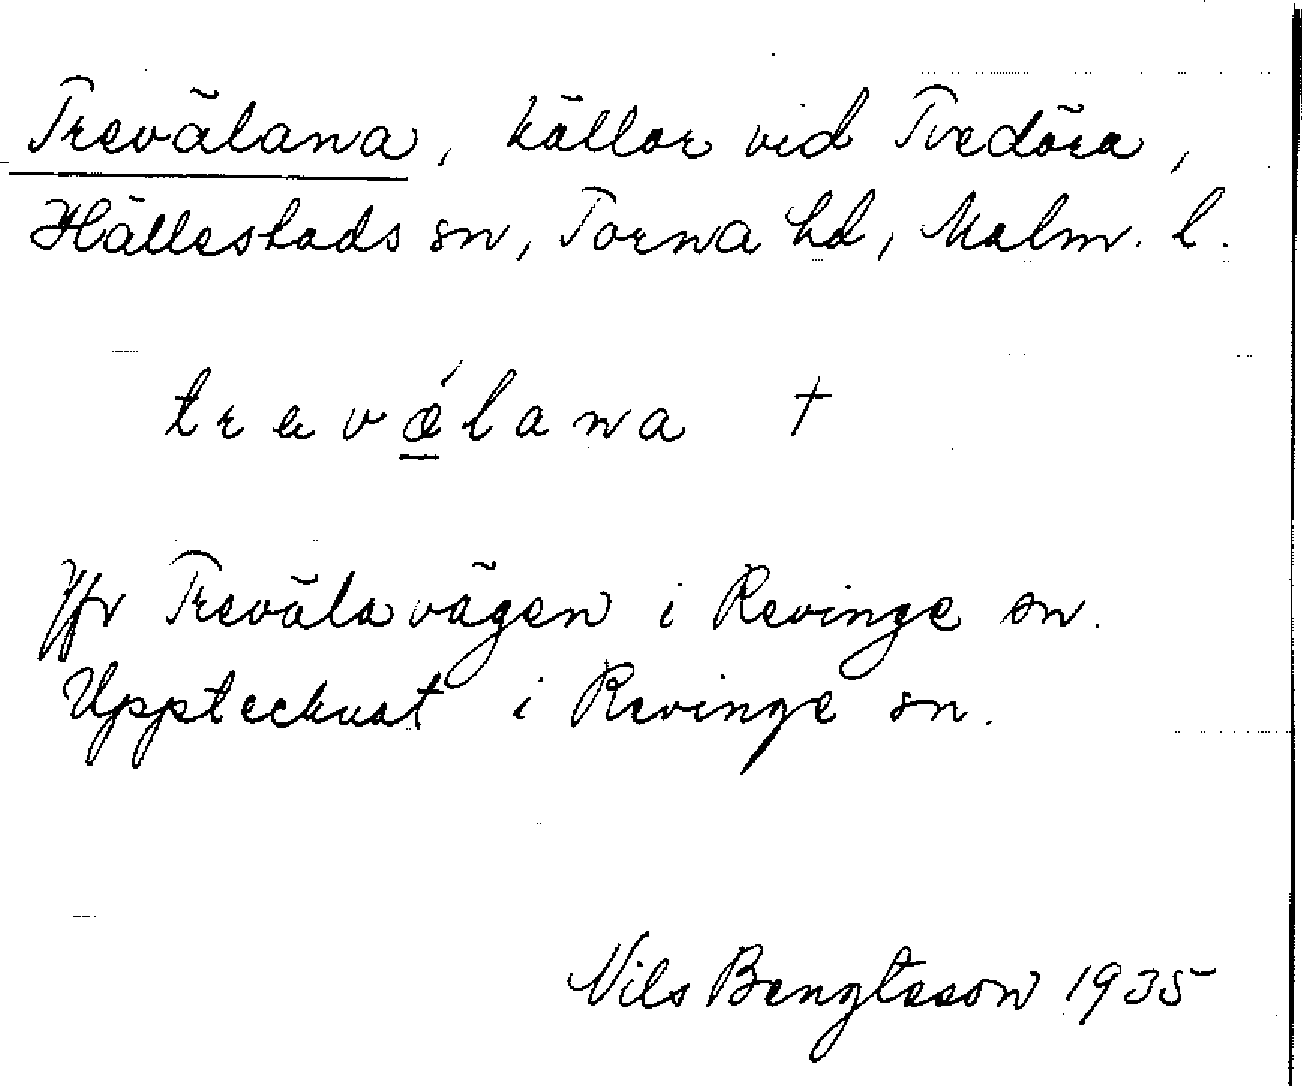 Trevälana, källor vid Tvedöra,
Hällestads sn, Torna hd, Malm. l.
trevǽlana †
Jfr Trevälavägen i Revinge sn.
Upptecknat i Revinge sn.
Nils Bengtsson 1935